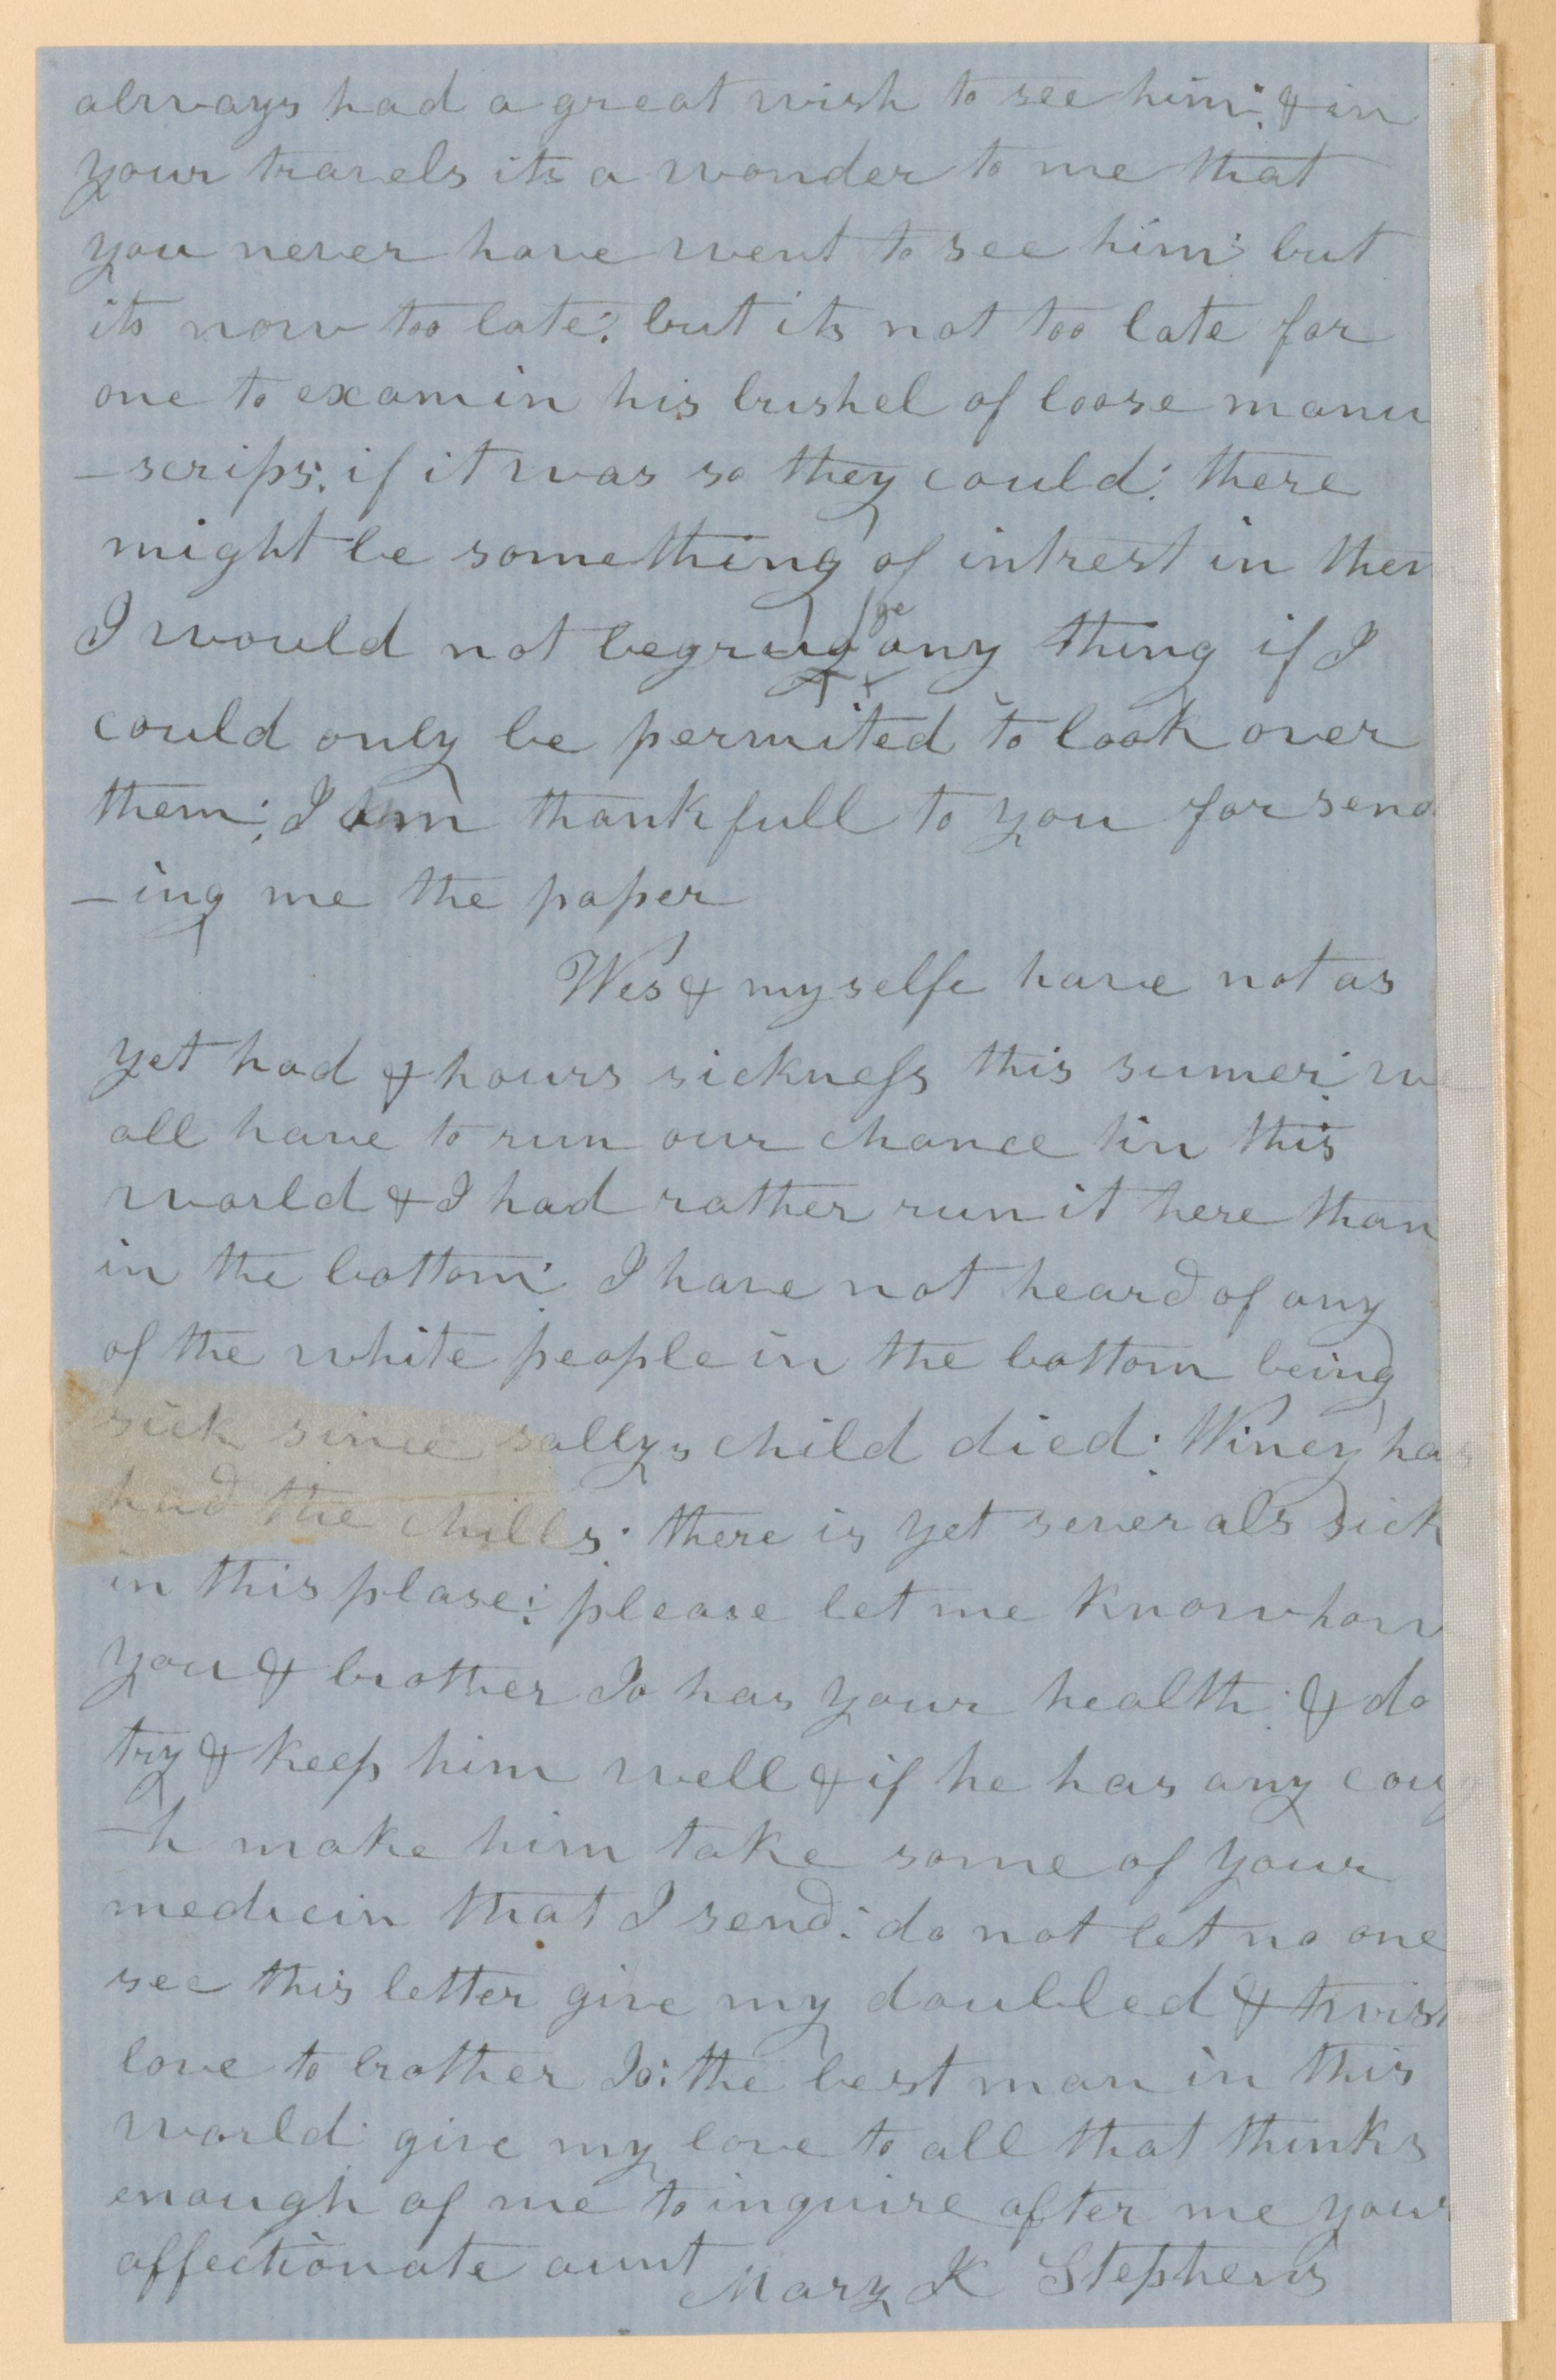 always had a great wish to see him: & in
your travels its a wonder to me that
you never have went to see him: but
its now too late: but its not too late for
one to examin his bushel of loose manu
-scrips: if it was so they could: there
might be something of intrest in them
I would not begrudge any thing if I
could only be permited to look over
them: I am thankfull to you for send
-ing me the paper
Wes & myselfe have not as
yet had & hours sickness this sumer: we
all have to run our chance in this
world & I had rather run it here than
in the bottom: I have not heard of any
of the white people in the bottom being
sick since sallys child died: Winey has
had the chills: there is yet severals sick
in this plase: please let me know how
you & brother Jo has your health: & do
try & keep him well & if he has any coug
-h make him take some of your
medicin that I send: do not let no one
see this letter give my doubled & twist
love to brother Jo: the best man in this
world: give my love to all that thinks
enough of me to inquire after me your
affectionate aunt Mary K Stephens